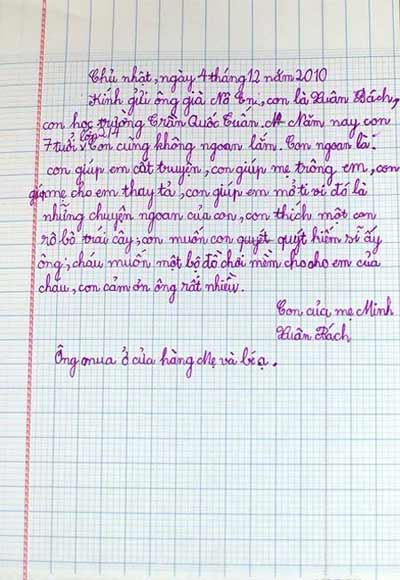 Chủ nhật, ngày 4 tháng 12 năm 2010
Kính gửi ông già Nô En, con là Xuân Bách,
con học trường Trần Quốc Tuấn. Năm nay con
lớp 2/4
7 tuổi Con cũng không ngoan lắm. Con ngoan là:
con giúp em cất truyện, con giúp mẹ trông em, con
giúp mẹ cho em thay tả, con giúp em mở ti vi đó là
những chuyện ngoan của con, con thích một con
rô bô trái cây, con muốn con quyết quýt hiếm sĩ ấy
ông, cháu muốn một bộ đồ chơi mềm cho cho em của
cháu, con cảm ơn ông rất nhiều.
Con của mẹ Minh
Xuân Bách
Ông mua ở cửa hàng Mẹ và bé ạ.